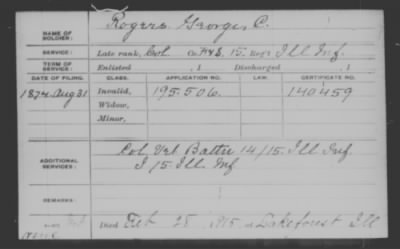 NAME OF SOLDIER: Rogers, George, C.
SERVICE: Late rank, Col. Co. F&S, 15 Reg't Ill Inf
TERM OF SERVICE: Enlisted , 1 Discharged , 1
DATE OF FILING. CLASS. APPLICATION NO. LAW. CERTIFICATE NO.
1874 Aug 31 Invalid, 195.506. 140459
Widow,
Minor,
ADDITIONAL SERVICES: Col. Vet Battn 14/15. Ill Inf.
I 15 Ill. Inf
REMARKS:
Died Feb 28 1915, at Lake forest Ill